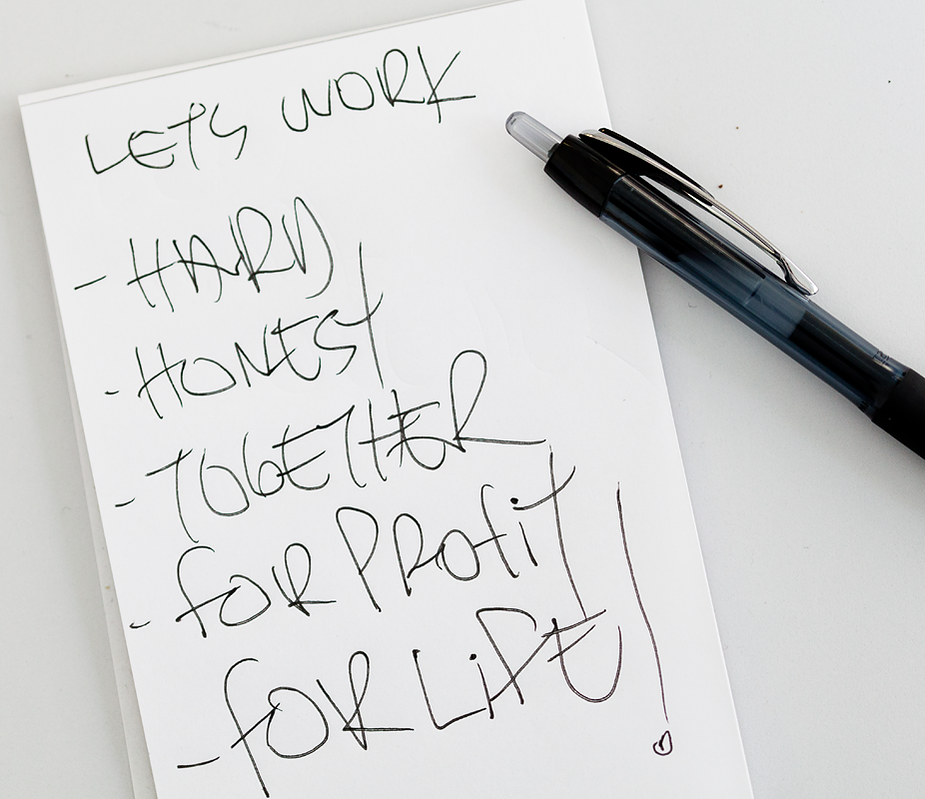 LETS WORK
- HARD
- HONEST
- TOGETHER
- FOR PROFIT
- FOR LIFE!